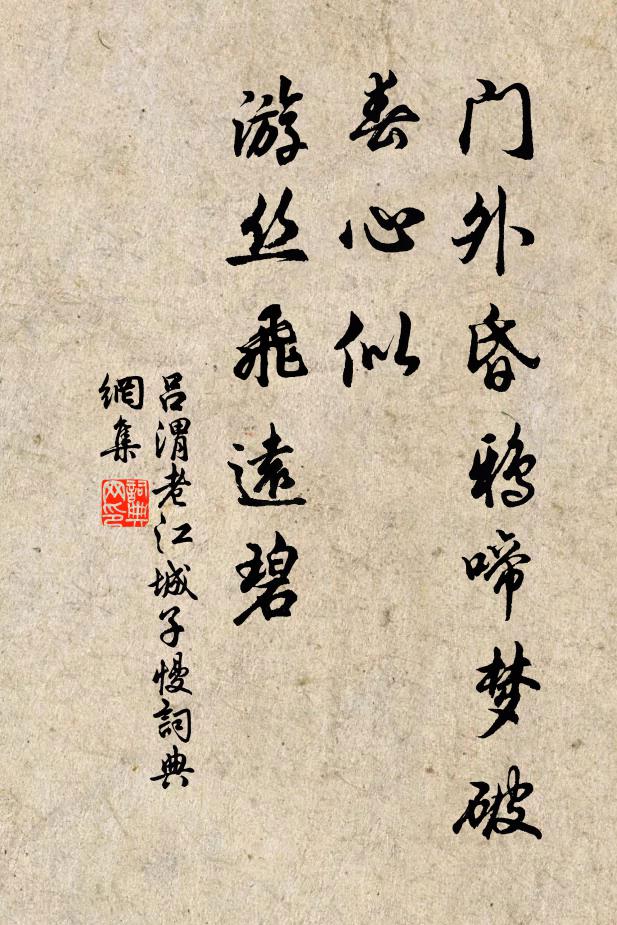 门外昏鸦啼梦破
春心似
游丝飛遠碧
吕渭老江城子慢詞典
網集
詞典
网印